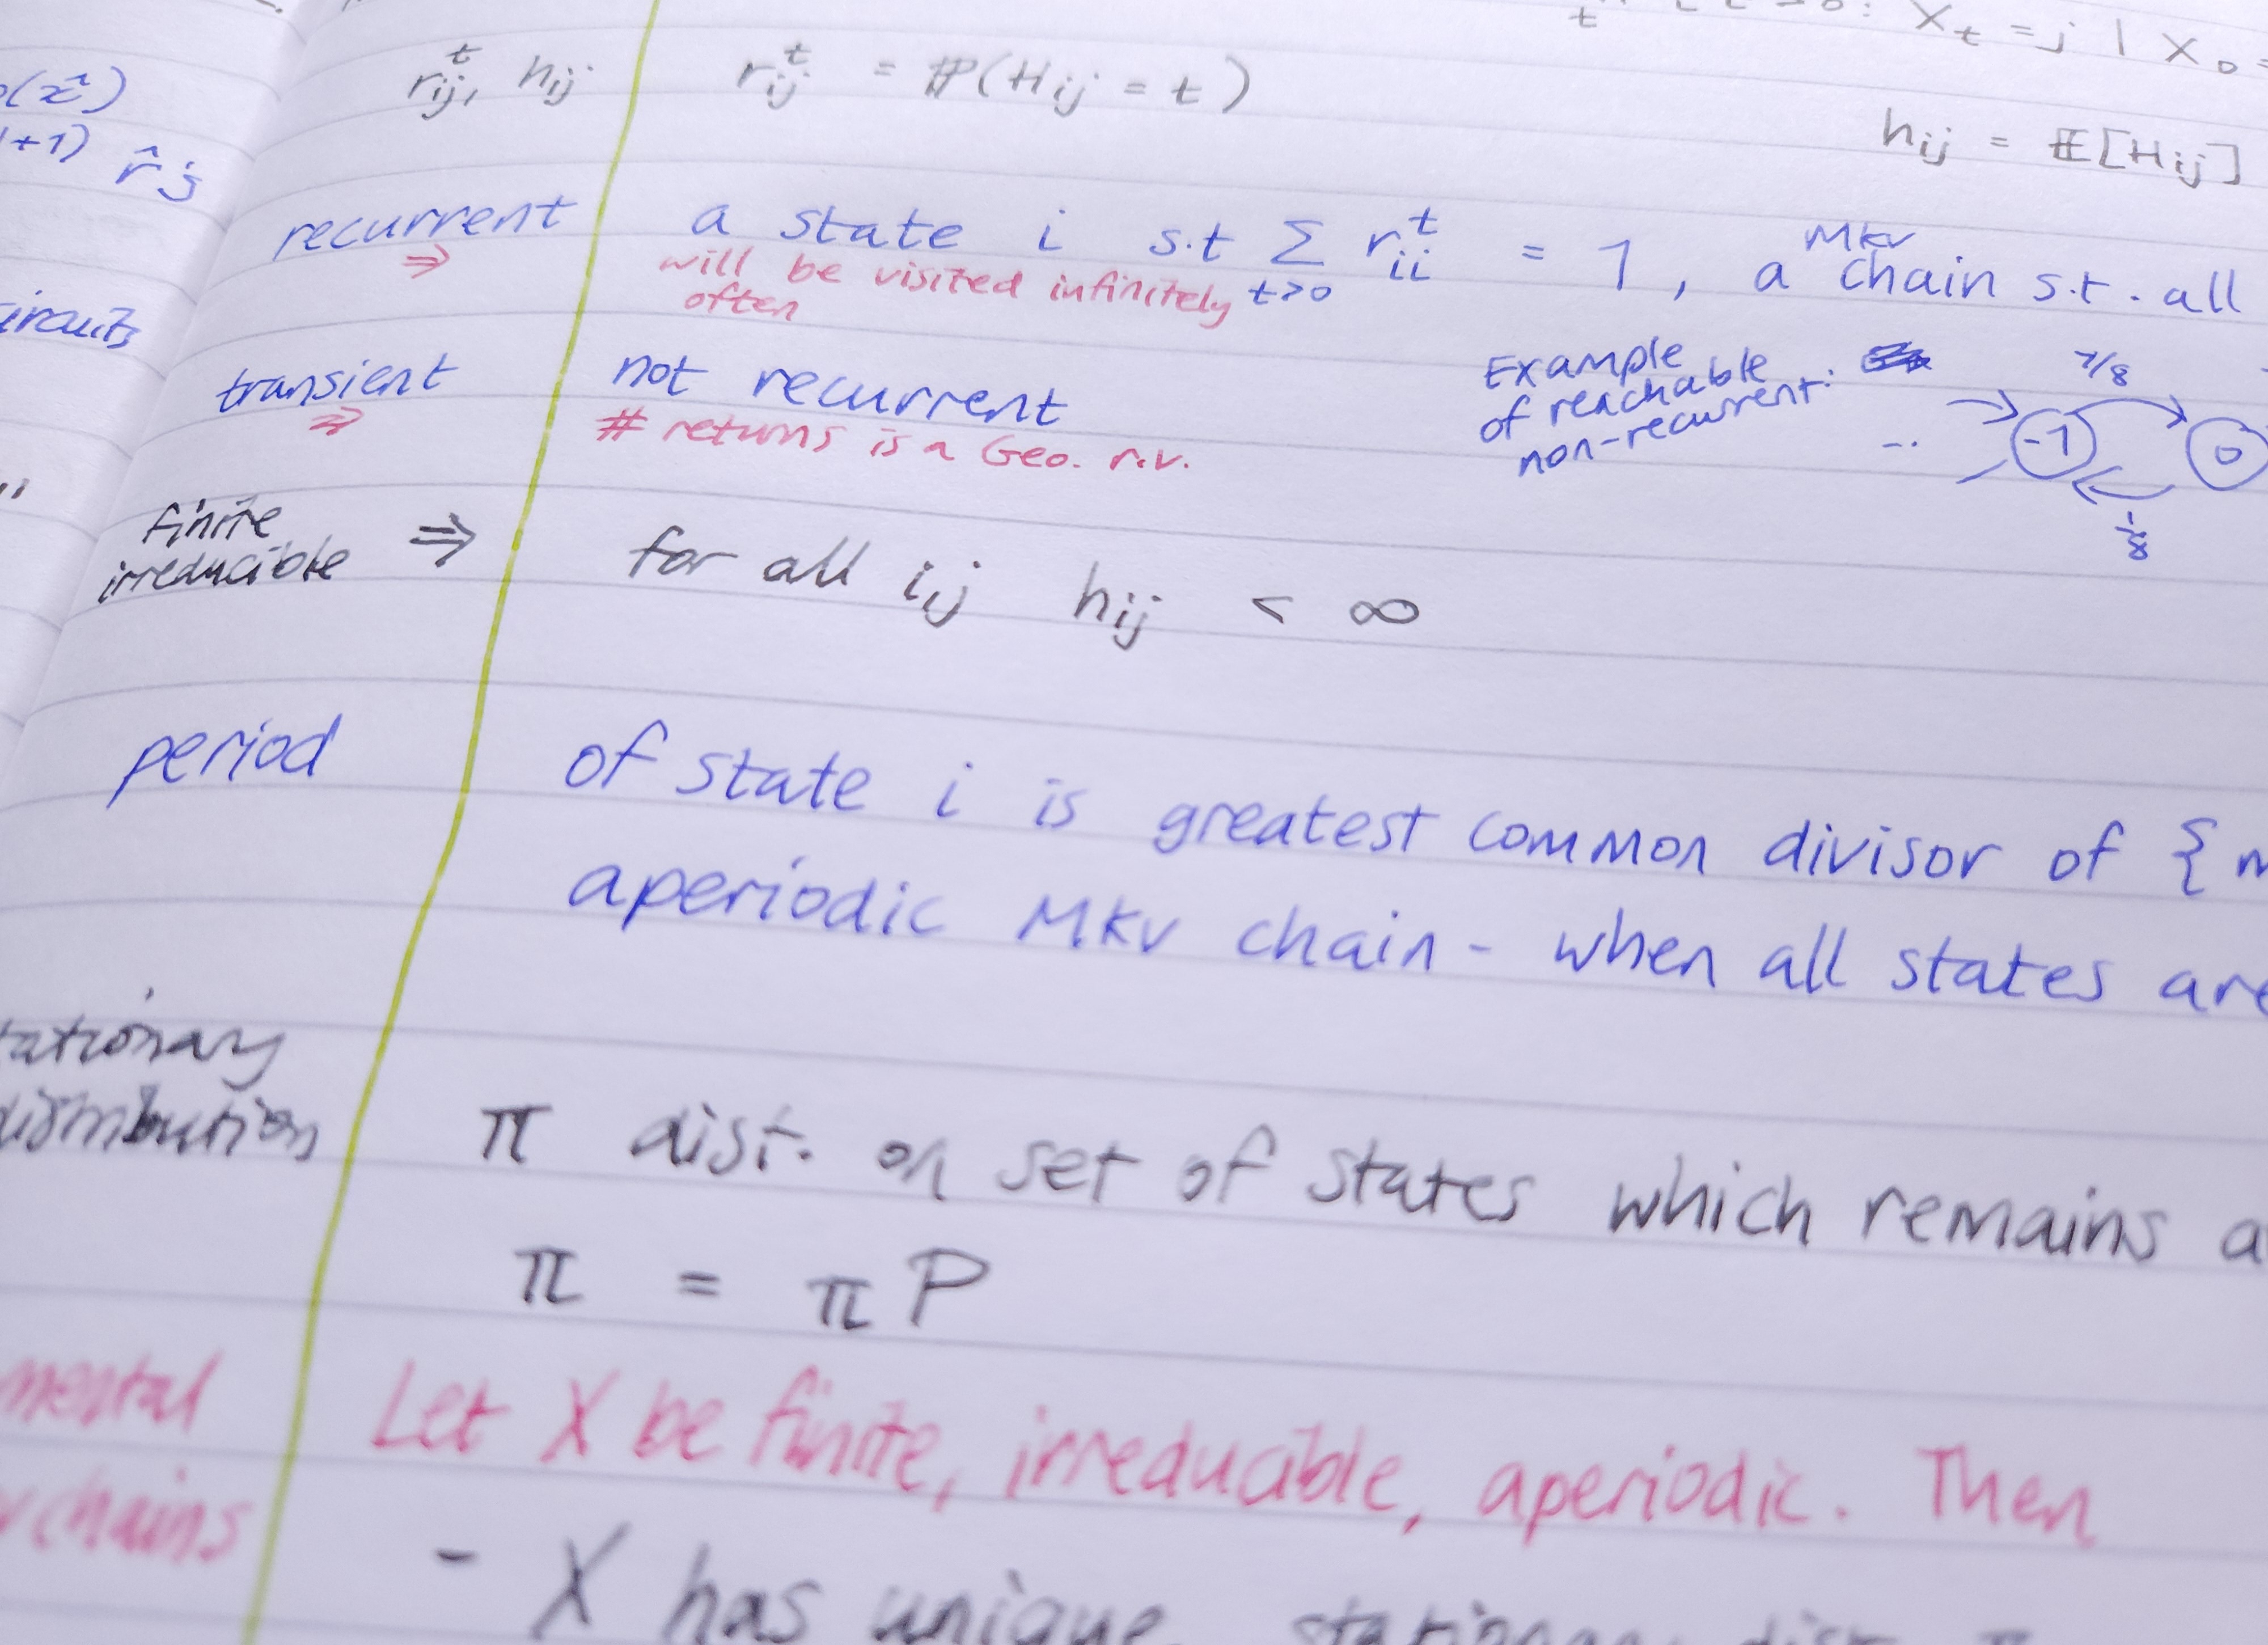 X_t = j | X_0 =
r_ij^t, h_ij r_ij^t = ℙ(H_ij = t)
h_ij = 𝔼[H_ij]
(x̂)
+1) r̂_j
recurrent a state i s.t Σ_{t>0} r_ii^t = 1, a Mkv chain s.t. all
⇒ will be visited infinitely
often
ircuits
transient not recurrent
⇒ # returns is a Geo. r.v.
Example
of reachable
non-recurrent:
7/8
... -1 0
1/8
finite
irreducible ⇒ for all i,j h_ij < ∞
period of state i is greatest common divisor of {
aperiodic Mkv chain - when all states are
tationary
distribution π dist. on set of states which remains
π = π P
mental Let X be finite, irreducible, aperiodic. Then
chains
- X has unique stationary dist. π